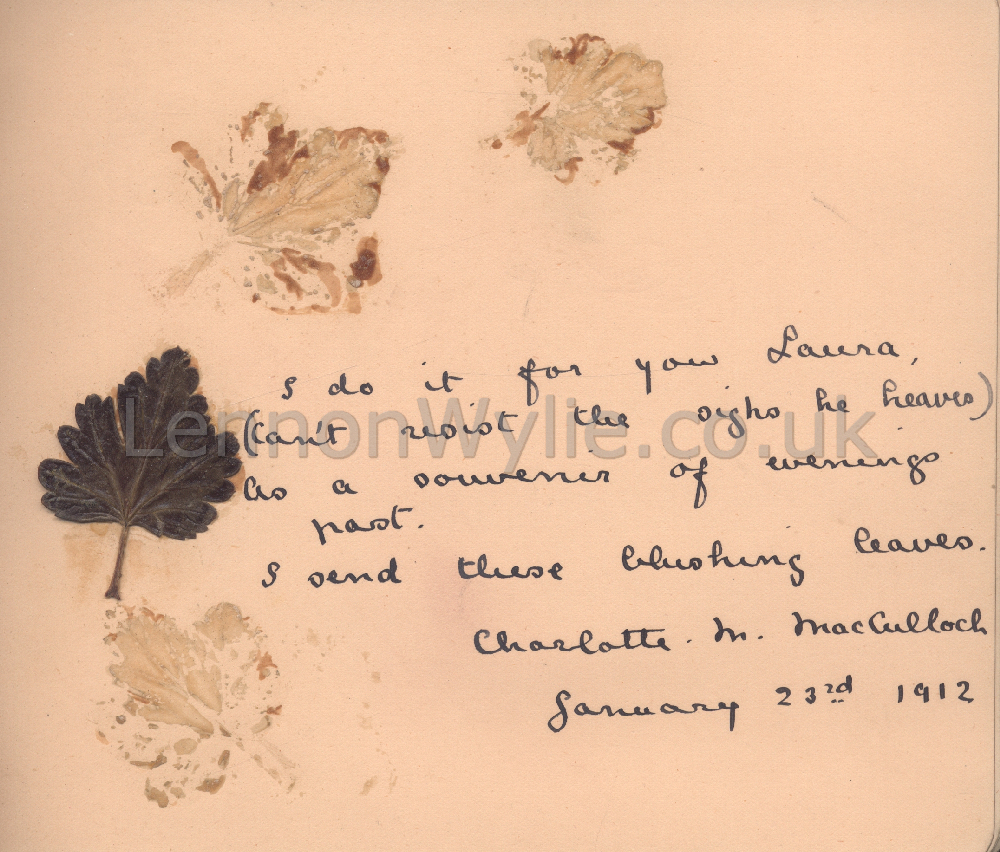 I do it for you Laura,
(Can't resist the sighs he heaves)
As a souvenir of evenings
past.
I send these blushing leaves.
Charlotte. M. MacCulloch
January 23rd 1912
LennonWylie.co.uk